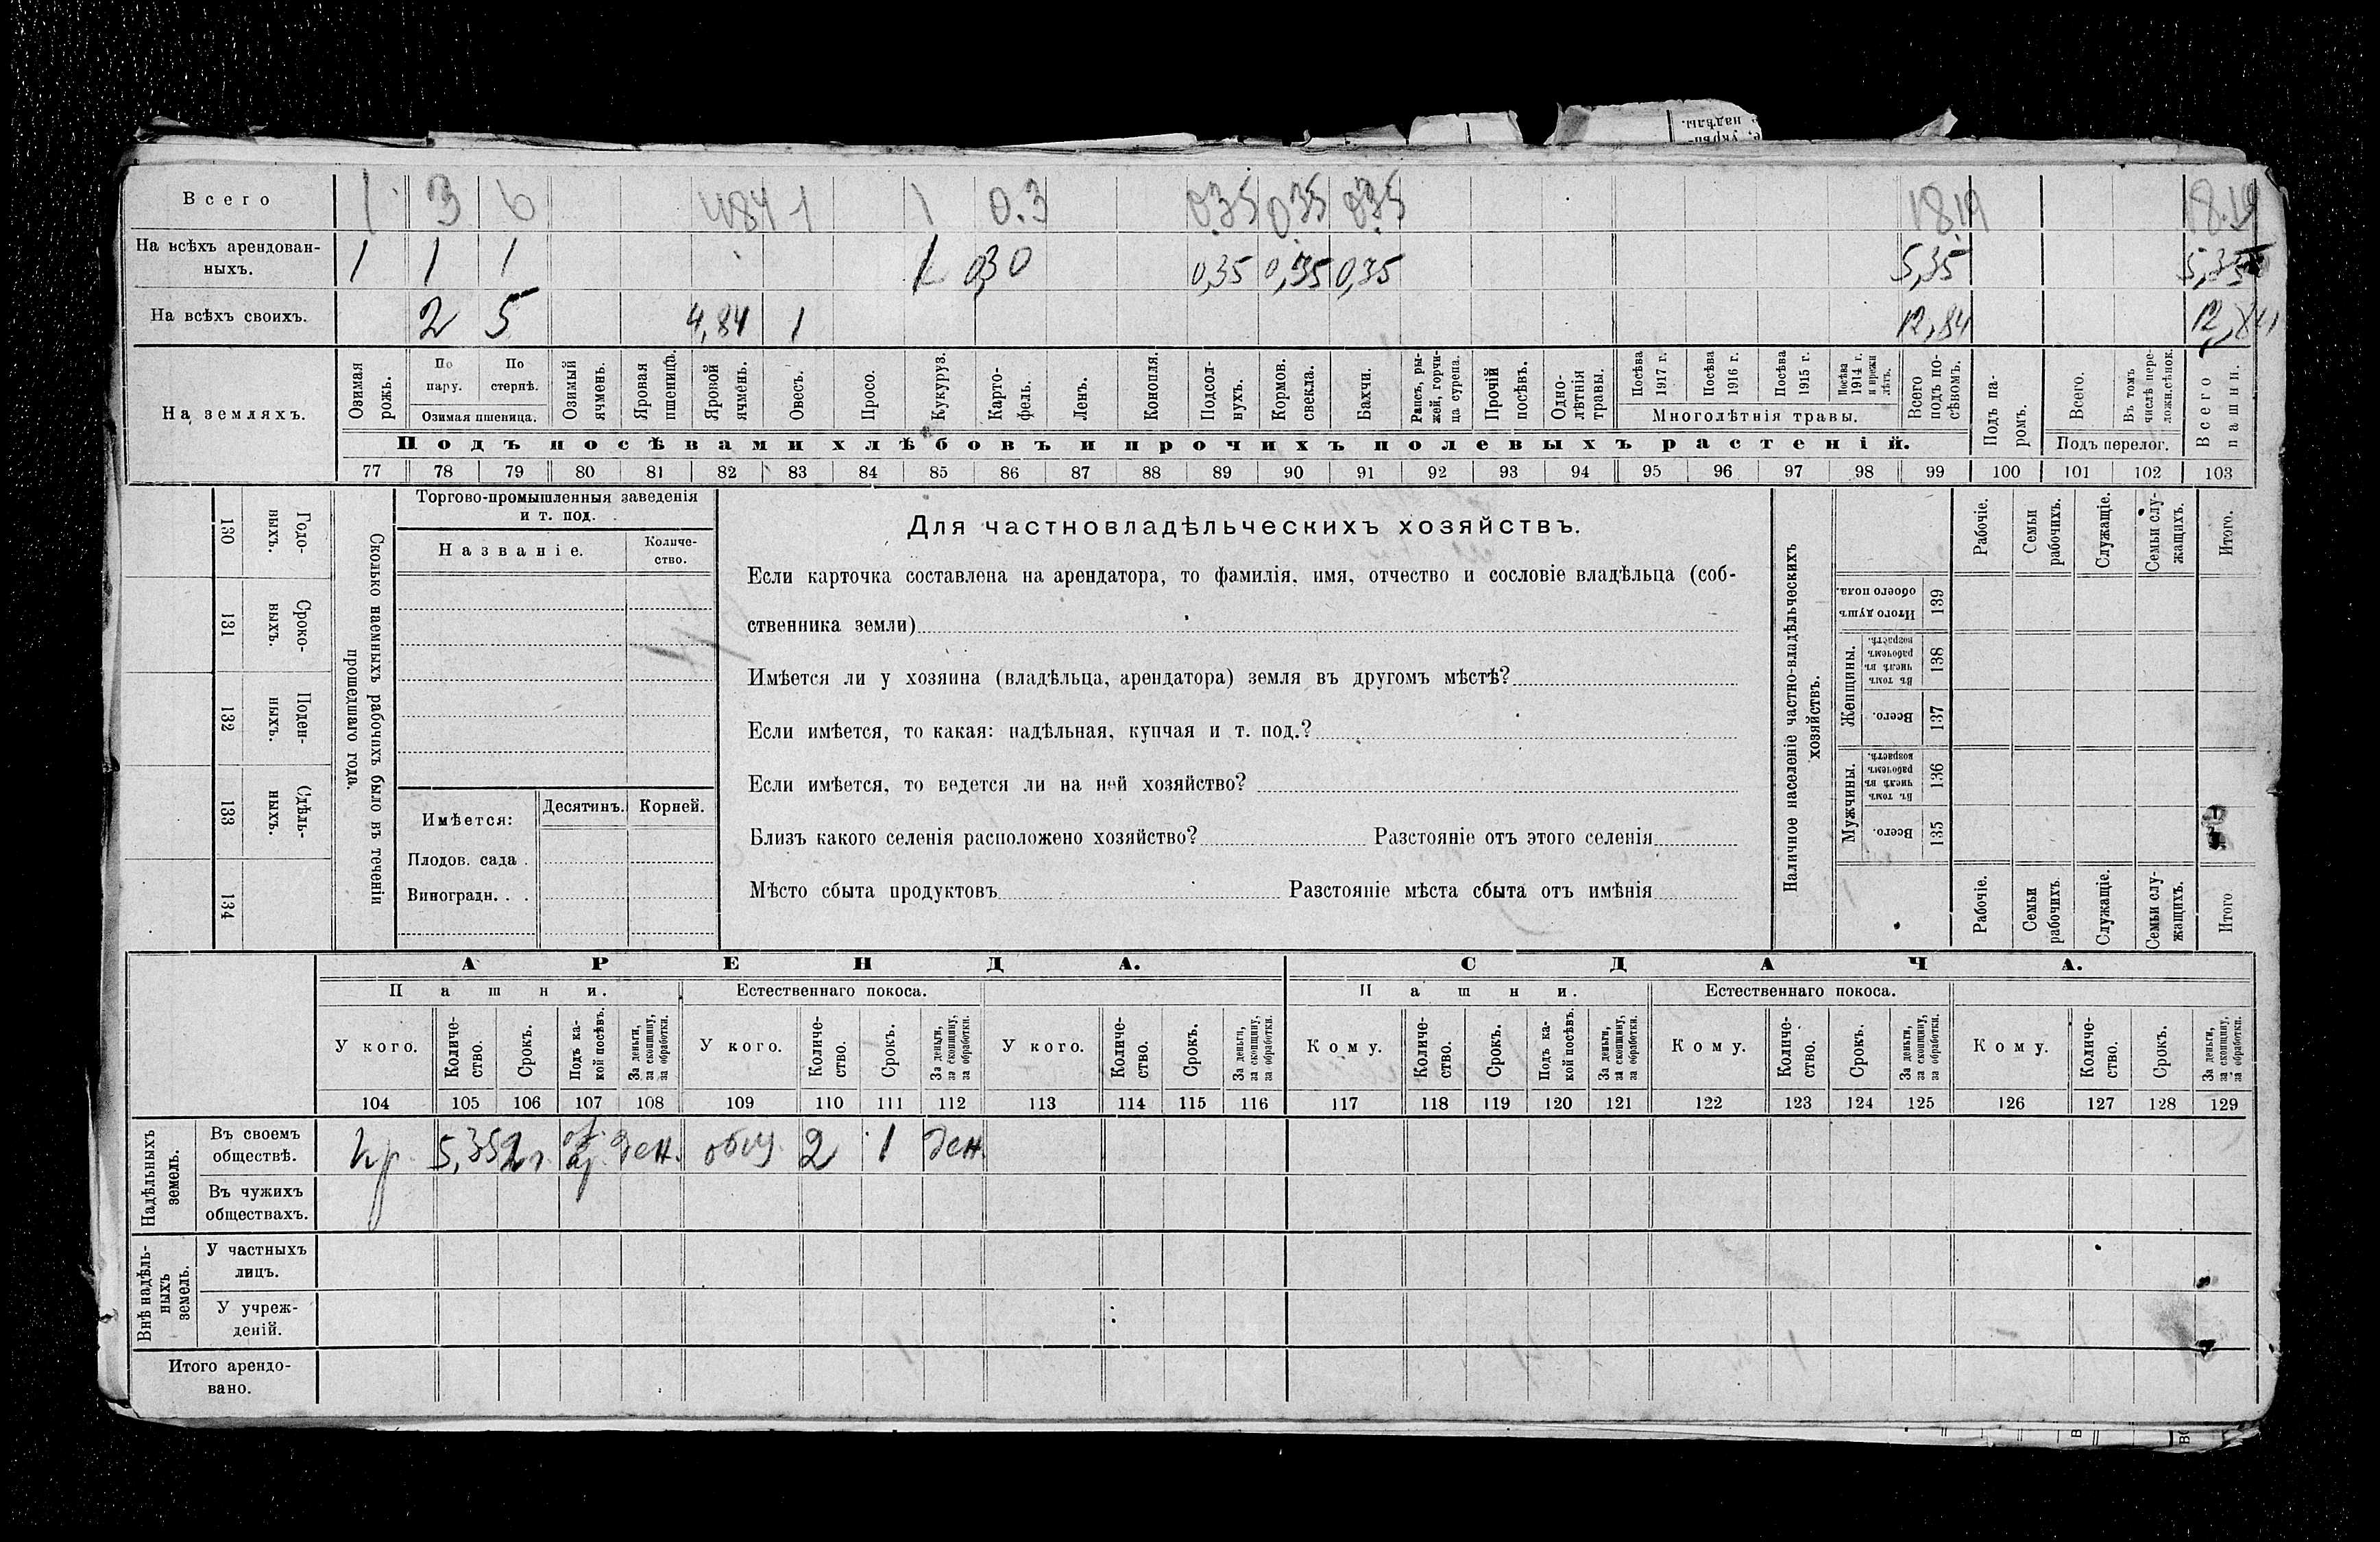 надѣлы.
Всего 1 3 6 4 84 1 1 0.3 0.35 0.35 0.35 18.19 18.19
На всѣхъ арендован-
ныхъ. 1 1 1 1 0,30 0,35 0,35 0,35 5,35 5,35
На всѣхъ своихъ. 2 5 4,84 1 12,84 12,84
На земляхъ.
Озимая рожь.
По пару.
По стернѣ.
Озимая пшеница.
Озимый ячмень.
Яровая пшеница.
Яровой ячмень.
Овесъ.
Просо.
Кукуруз.
Карто-
фель.
Ленъ.
Конопля.
Подсол-
нухъ.
Кормов.
свекла.
Бахчи.
Рапсъ, ры-
жей, горчи-
ца сурепа.
Прочій
посѣвъ.
Одно-
лѣтнія
травы.
Посѣва
1917 г.
Посѣва
1916 г.
Посѣва
1915 г.
Посѣва
1914 г.
и прежн
лѣтъ.
Многолѣтнія травы.
Всего
подъ по-
сѣвомъ.
Подъ па-
ромъ.
Всего.
Въ томъ
числѣ пере-
ложн.сѣнок.
Подъ перелог.
Всего
пашни.
Подъ посѣвами хлѣбовъ и прочихъ полевыхъ растеній.
77 78 79 80 81 82 83 84 85 86 87 88 89 90 91 92 93 94 95 96 97 98 99 100 101 102 103
130 Годо-
ныхъ.
131 Сроко-
ныхъ.
132 Поден-
ныхъ.
133 Сдѣль-
ныхъ.
134
Сколько наемныхъ рабочихъ было въ теченіи
прошедшаго года.
Торгово-промышленныя заведенія
и т. под.
Названіе.
Количе-
ство.
Имѣется:
Десятинъ.
Корней.
Плодов. сада .
Виноградн. . .
Для частновладѣльческихъ хозяйствъ.
Если карточка составлена на арендатора, то фамилія, имя, отчество и сословіе владѣльца (соб-
ственника земли)
Имѣется ли у хозяина (владѣльца, арендатора) земля въ другомъ мѣстѣ?
Если имѣется, то какая: надѣльная, купчая и т. под.?
Если имѣется, то ведется ли на ней хозяйство?
Близъ какого селенія расположено хозяйство? Разстояніе отъ этого селенія
Мѣсто сбыта продуктовъ Разстояніе мѣста сбыта отъ имѣнія
Наличное населеніе частно-владѣльческихъ
хозяйствъ.
Рабочіе.
Семьи
рабочихъ.
Служащіе.
Семьи слу-
жащихъ.
Итого.
Итого душъ
обоего пола.
139
Женщины.
Въ томъ
числѣ въ
рабочемъ
возрастѣ.
138
Всего.
137
Мужчины.
Въ томъ
числѣ въ
рабочемъ
возрастѣ.
136
Всего.
135
Рабочіе.
Семьи
рабочихъ.
Служащіе.
Семьи слу-
жащихъ.
Итого
АРЕНДА. СДАЧА.
Пашни. Естественнаго покоса. Пашни. Естественнаго покоса.
У кого.
Количе-
ство.
Срокъ.
Подъ ка-
кой посѣвъ.
За деньги,
за скопщину,
за обработки.
У кого.
Количе-
ство.
Срокъ.
За деньги,
за скопщину,
за обработки.
У кого.
Количе-
ство.
Срокъ.
За деньги,
за скопщину,
за обработки.
Кому.
Количе-
ство.
Срокъ.
Подъ ка-
кой посѣвъ.
За деньги,
за скопщину,
за обработки.
Кому.
Количе-
ство.
Срокъ.
За деньги,
за скопщину,
за обработки.
Кому.
Количе-
ство.
Срокъ.
За деньги,
за скопщину,
за обработки.
104 105 106 107 108 109 110 111 112 113 114 115 116 117 118 119 120 121 122 123 124 125 126 127 128 129
Надѣльныхъ
земель.
Въ своемъ
обществѣ. кр. 5,35 2 г. ден. общ. 2 1 ден.
Въ чужихъ
обществахъ.
Внѣ надѣль-
ныхъ
земель.
У частныхъ
лицъ.
У учреж-
деній.
Итого арендо-
вано.